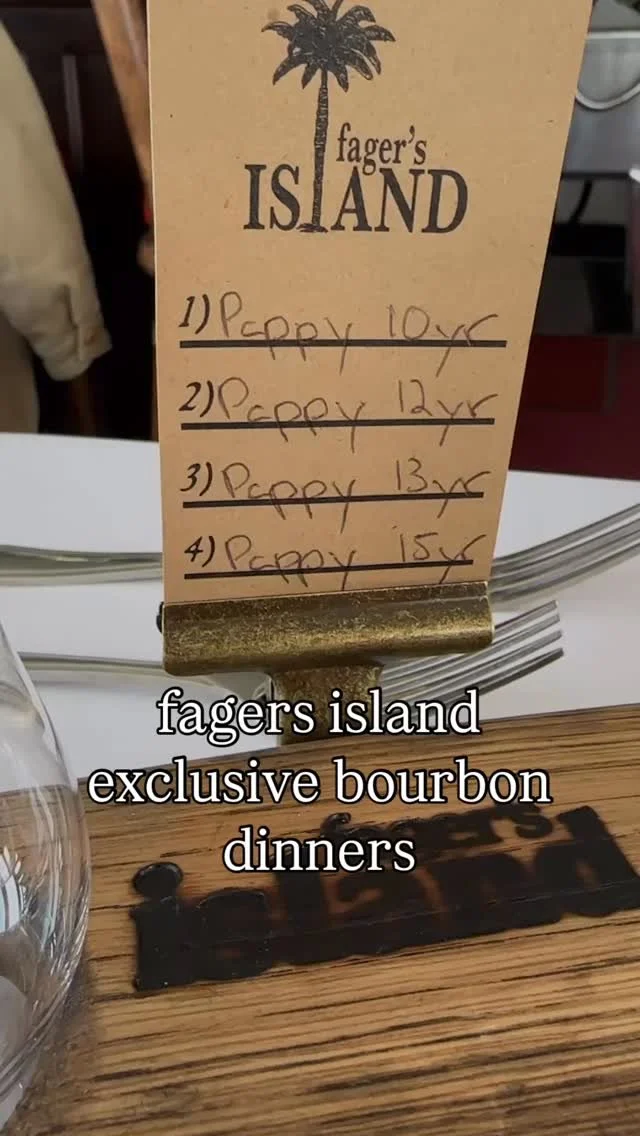 fager's
ISLAND
1) Pappy 10yr
2) Pappy 12yr
3) Pappy 13yr
4) Pappy 15yr
fagers island
exclusive bourbon
dinners
fager's
island